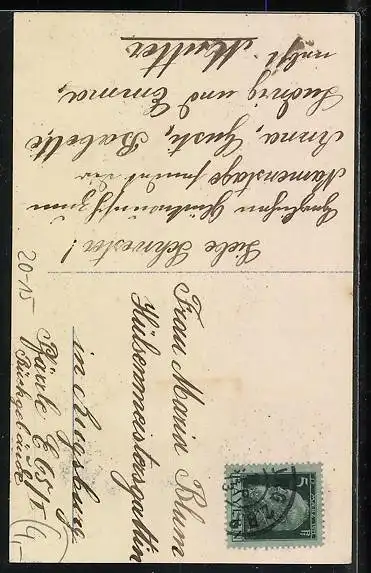 Liebe Schwester!
Herzlichen Glückwunsch zum
Namenstage sendet Dir
Anna, Gusti, Babette,
Ludwig und Emma,
nebst Mutter
Frau Maria Blum
Hülsenmeistersgattin
in Augsburg
Pfärrle E 65/I
Rückgebäude
20-15
5